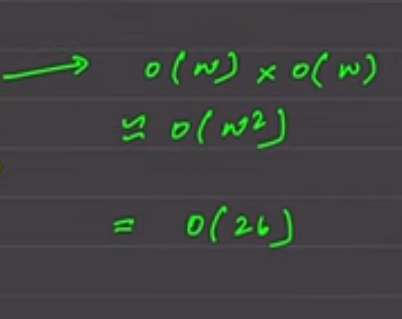 → O(N) × O(N)
≈ O(N²)
= O(26)